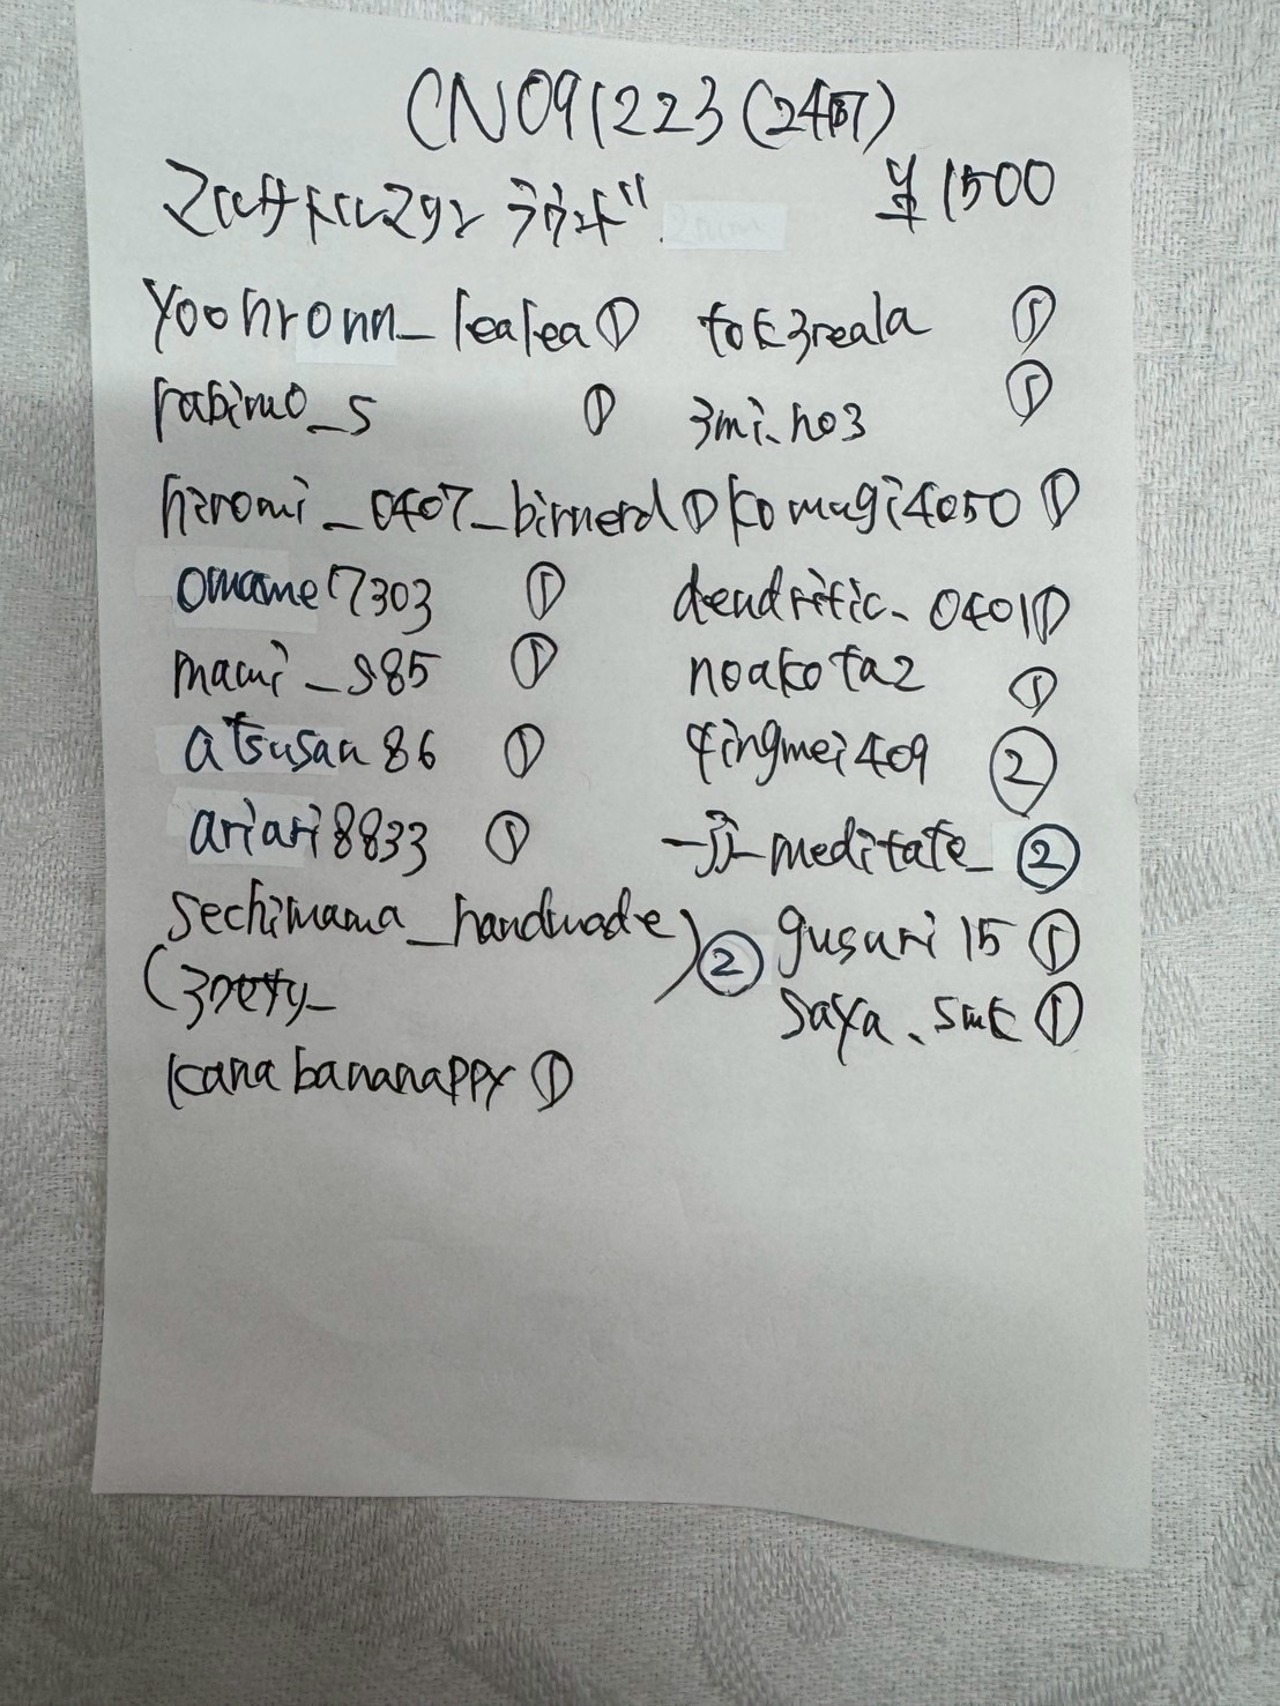 CN091223(24時)
マルチトルマリン ラウンド ¥1500
yoohronn_lealea①
tok3reala ①
rabimo_s ①
3mi.no3 ①
hiromi_0407_birnerd①
komugi4050①
omame17303 ①
dendritic_0401①
mami_s85 ①
noakota2 ①
atsusan86 ①
qingmei409 ②
ariari8833 ①
_ji_meditate_②
sechimama_handmade
gusuri15①
saya.smk①
kanabananappy①